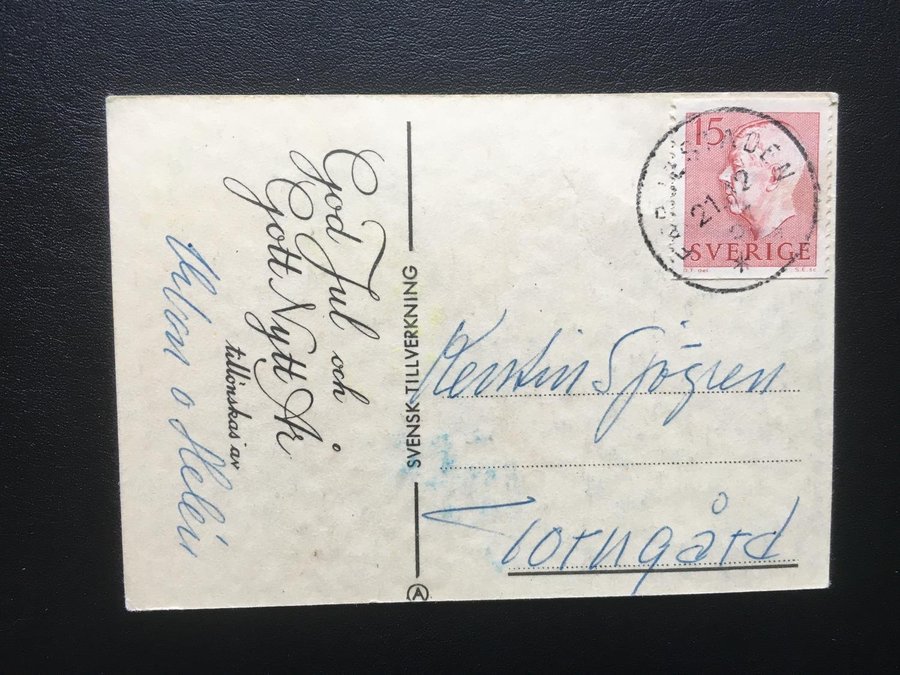 God Jul och
Gott Nytt År
tillönskas av
o Helén
SVENSK TILLVERKNING
A
15
SVERIGE
FÄRJESTADEN
21 12
Kerstin Sjögren
Torngård